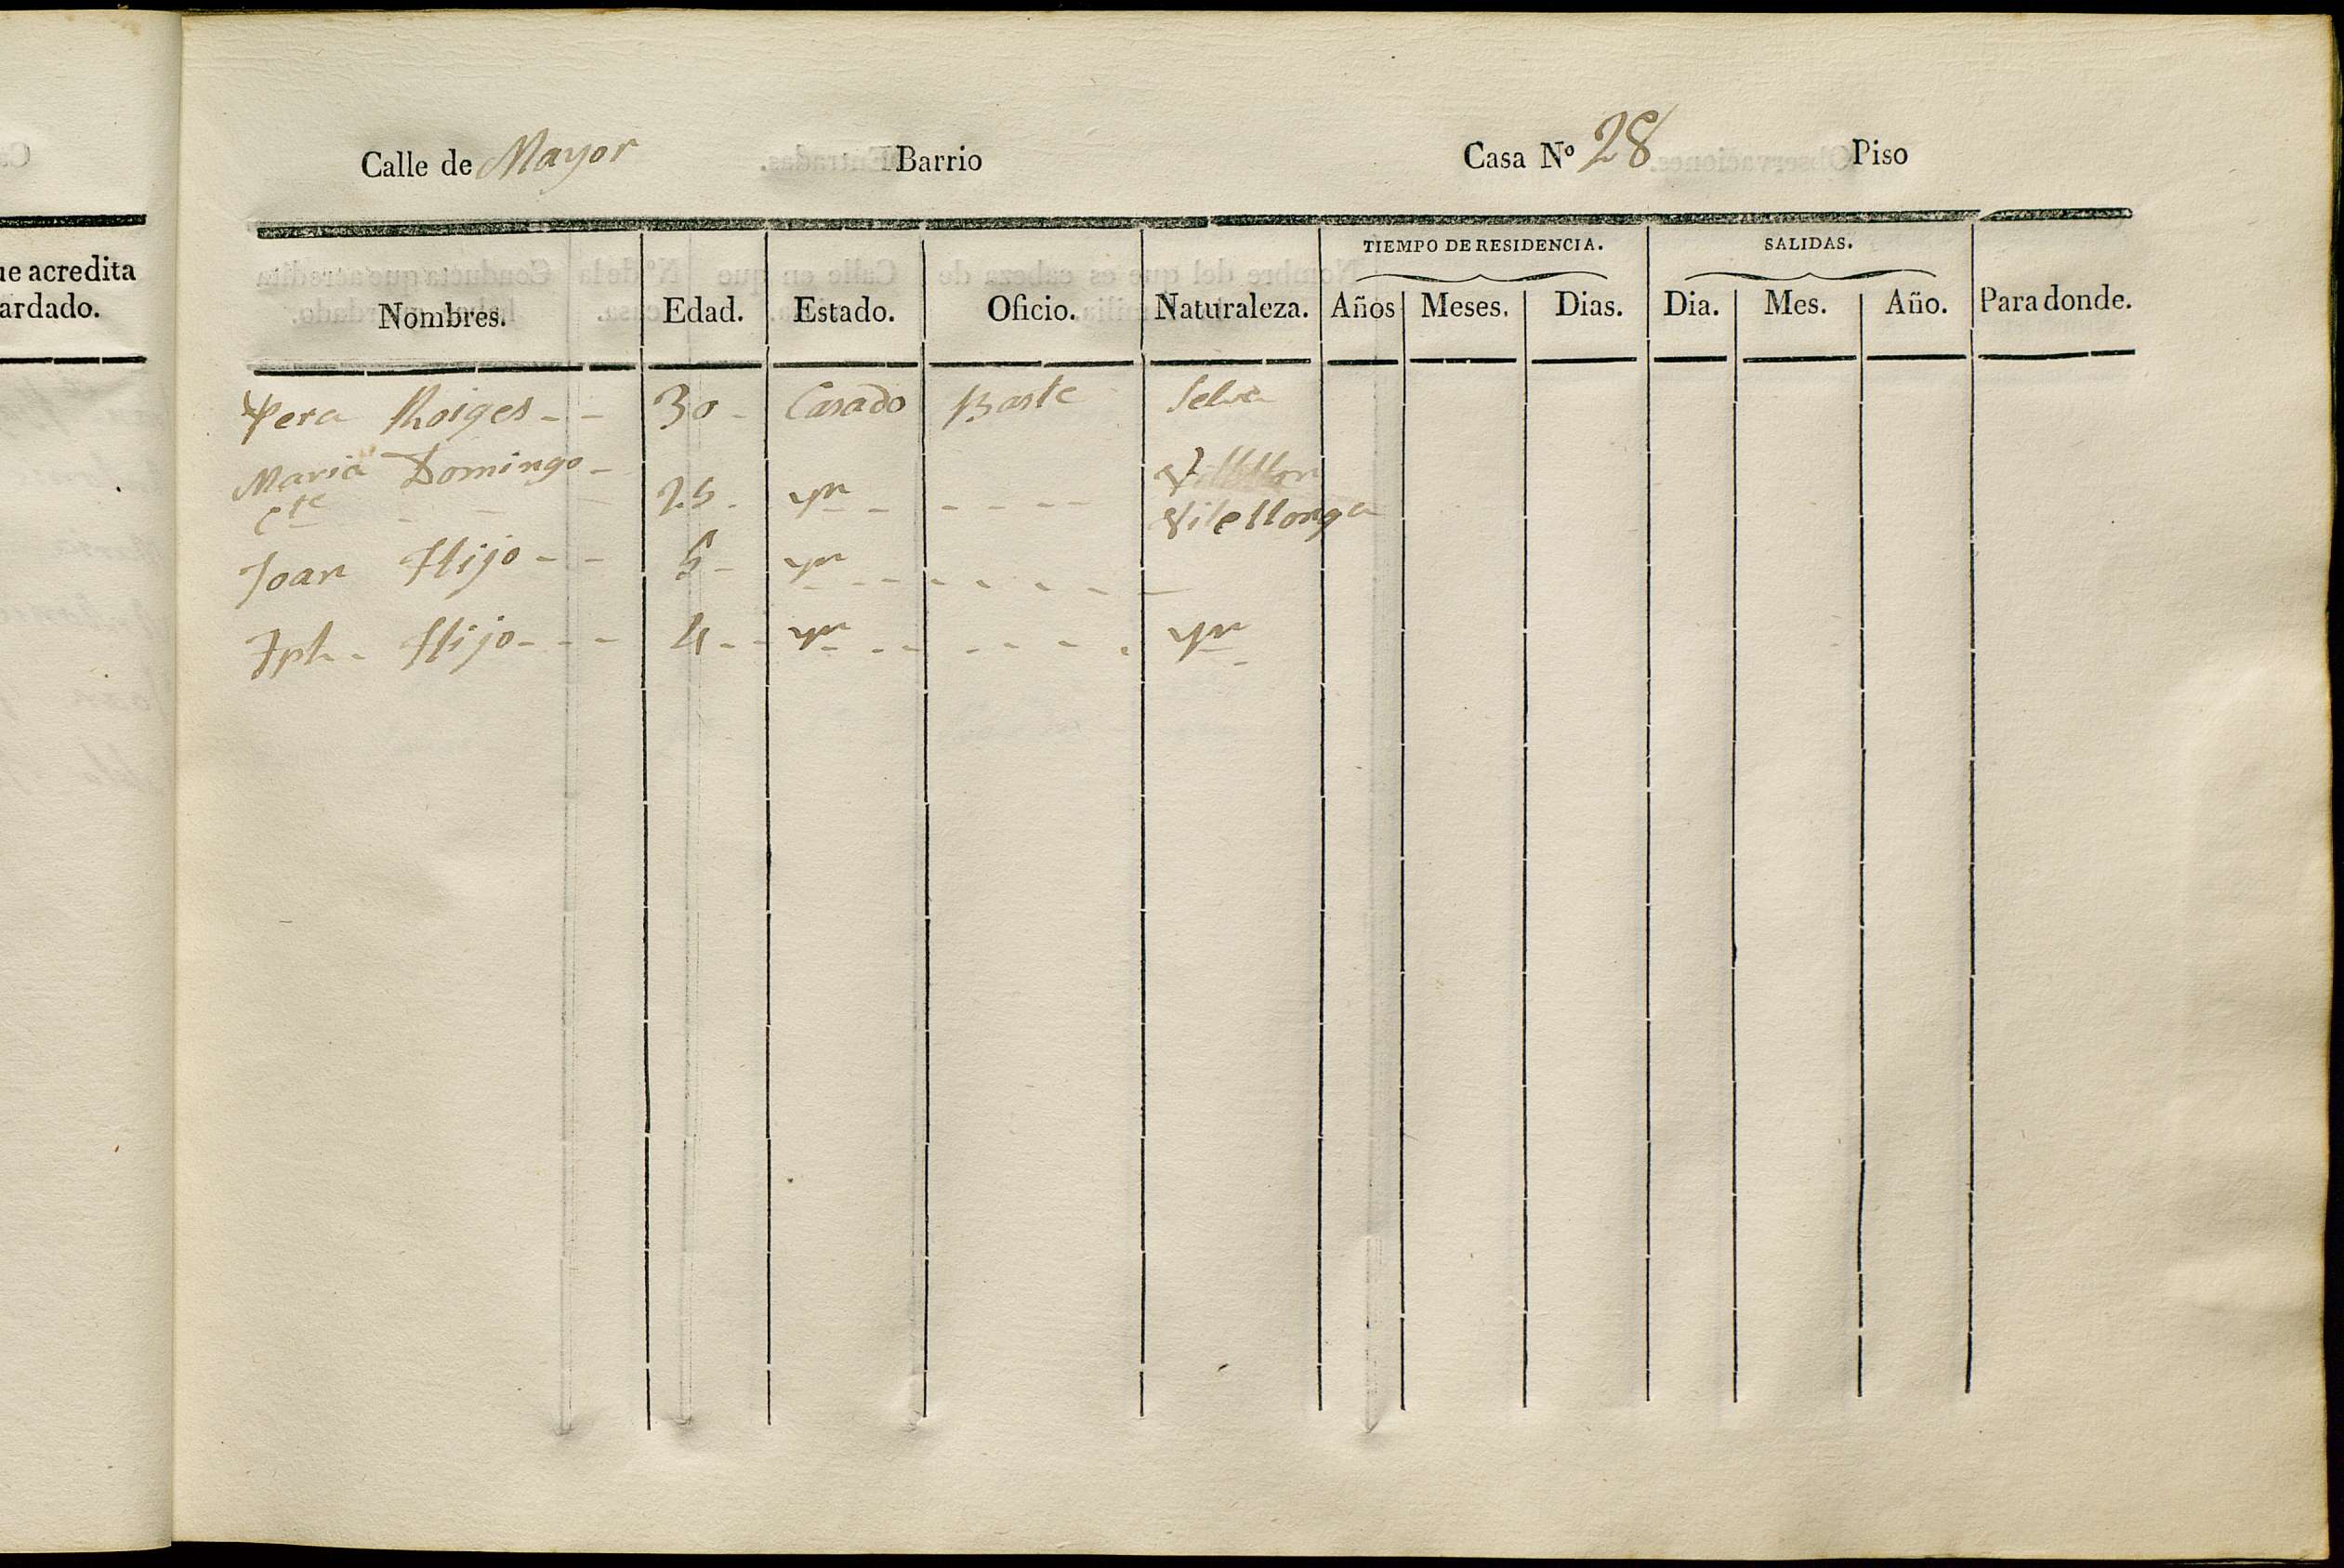 Calle de Mayor Barrio Casa Nº 28 Piso
TIEMPO DE RESIDENCIA. SALIDAS.
Nombres. Edad. Estado. Oficio. Naturaleza. Años Meses. Dias. Dia. Mes. Año. Para donde.
Pera Roiges - - 30 - Casado Baste Selva
Maria Domingo -
cte 25 - yn - - - - - Vilellonga
Joan Hijo - - 5 - yn - - - - - - -
Jph. - Hijo - - - 4 - - yn - - - - - - - yn -
ue acredita
ardado.